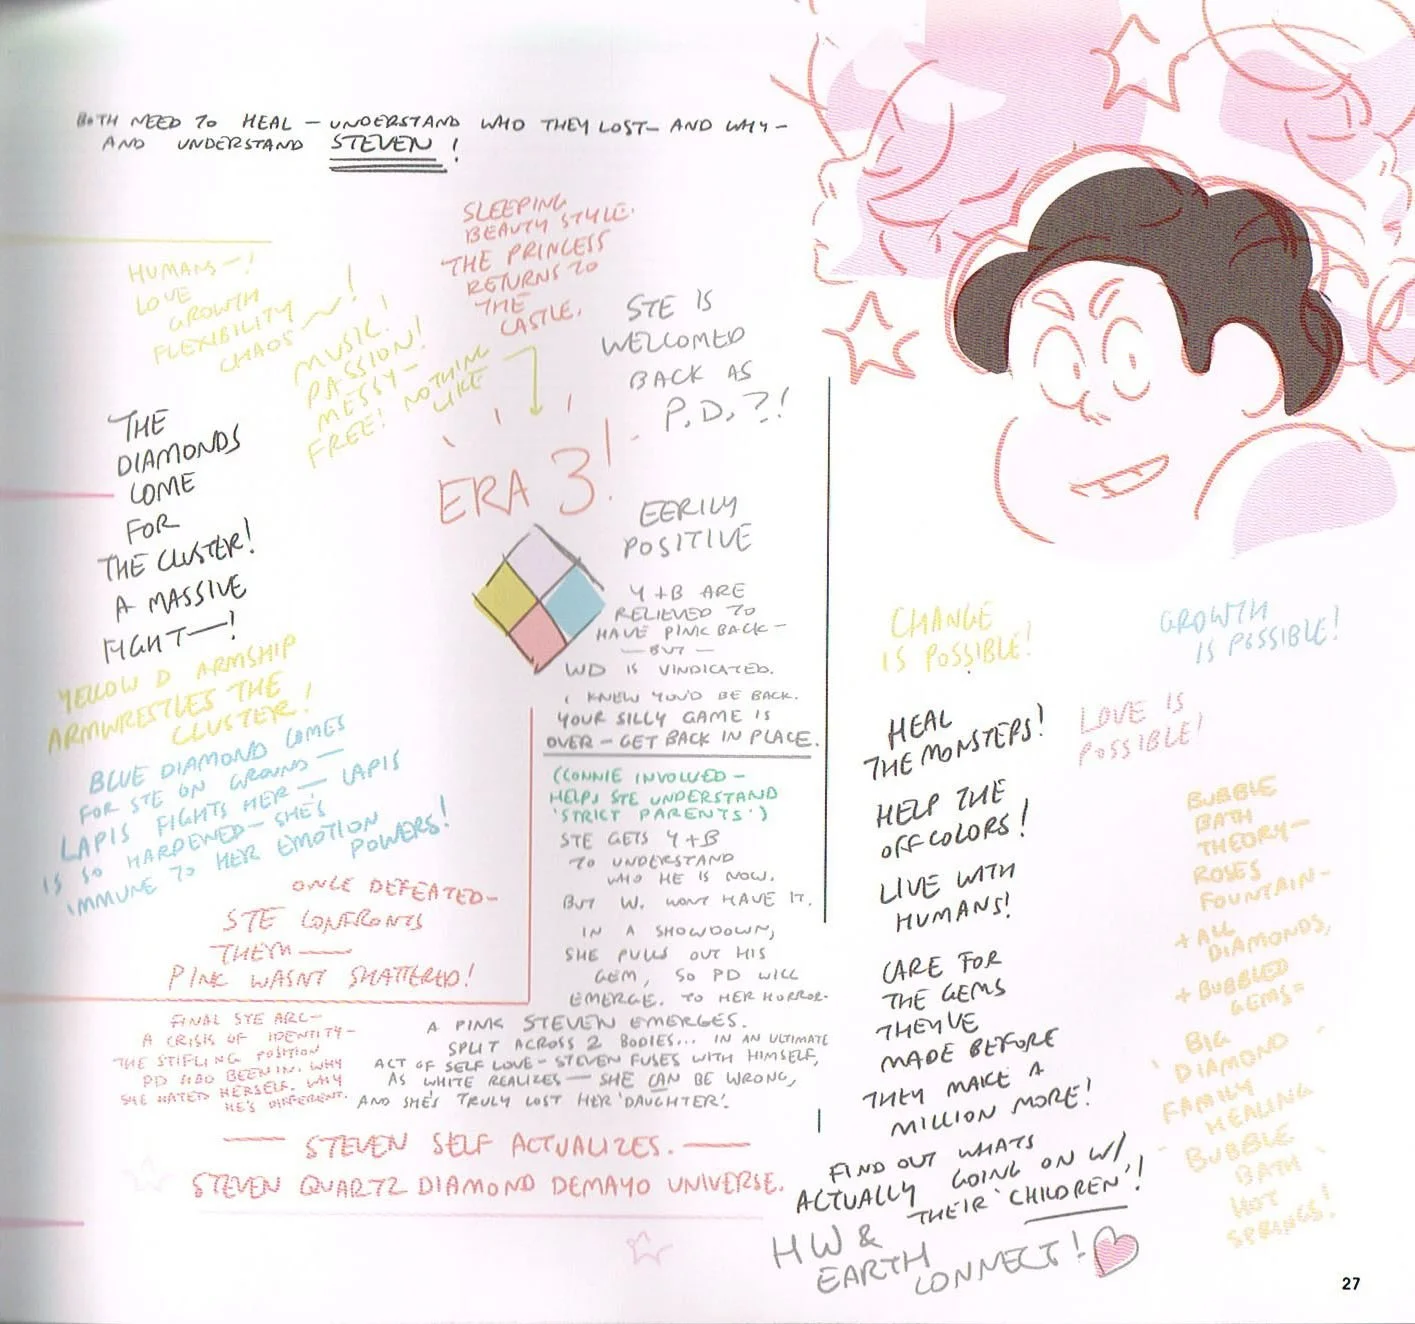 BOTH NEED TO HEAL — UNDERSTAND WHO THEY LOST — AND WHY —
AND UNDERSTAND STEVEN!
HUMANS —!
LOVE
GROWTH
FLEXIBILITY
CHAOS ~!
MUSIC!
PASSION!
MESSY —
FREE! NOTHING
LIKE
SLEEPING
BEAUTY STYLE.
THE PRINCESS
RETURNS TO
THE
CASTLE.
ERA 3!
STE IS
WELCOMED
BACK AS
P.D.?!
EERILY
POSITIVE
Y + B ARE
RELIEVED TO
HAVE PINK BACK —
— BUT —
WD IS VINDICATED.
I KNEW YOU'D BE BACK.
YOUR SILLY GAME IS
OVER — GET BACK IN PLACE.
(CONNIE INVOLVED —
HELPS STE UNDERSTAND
'STRICT PARENTS')
STE GETS Y+B
TO UNDERSTAND
WHO HE IS NOW.
BUT W. WONT HAVE IT.
IN A SHOWDOWN,
SHE PULLS OUT HIS
GEM, SO PD WILL
EMERGE. TO HER HORROR-
A PINK STEVEN EMERGES.
SPLIT ACROSS 2 BODIES... IN AN ULTIMATE
ACT OF SELF LOVE — STEVEN FUSES WITH HIMSELF,
AS WHITE REALIZES — SHE CAN BE WRONG,
AND SHE'S TRULY LOST HER 'DAUGHTER'.
THE
DIAMONDS
COME
FOR
THE CLUSTER!
A MASSIVE
FIGHT —!
YELLOW D ARMSHIP
ARMWRESTLES THE
CLUSTER!
BLUE DIAMOND COMES
FOR STE ON GROUND —
LAPIS FIGHTS HER — LAPIS
IS SO HARDENED — SHE'S
IMMUNE TO HER EMOTION
POWERS!
ONCE DEFEATED —
STE CONFRONTS
THEM —
PINK WASNT SHATTERED!
FINAL STE ARC —
A CRISIS OF IDENTITY —
THE STIFLING POSITION
PD HAD BEEN IN. WHY
SHE HATED HERSELF. WHY
HE'S DIFFERENT.
— STEVEN SELF ACTUALIZES. —
STEVEN QUARTZ DIAMOND DEMAYO UNIVERSE.
CHANGE
IS POSSIBLE!
GROWTH
IS POSSIBLE!
LOVE IS
POSSIBLE!
HEAL
THE MONSTERS!
HELP THE
OFF COLORS!
LIVE WITH
HUMANS!
CARE FOR
THE GEMS
THEYVE
MADE BEFORE
THEY MAKE A
MILLION MORE!
FIND OUT WHATS
ACTUALLY GOING ON W/
THEIR 'CHILDREN'!
HW &
EARTH
CONNECT!
BUBBLE
BATH
THEORY —
ROSES
FOUNTAIN —
+ ALL
DIAMONDS,
+ BUBBLED
GEMS =
BIG
DIAMOND
FAMILY
HEALING
BUBBLE
BATH
HOT
SPRINGS!
27